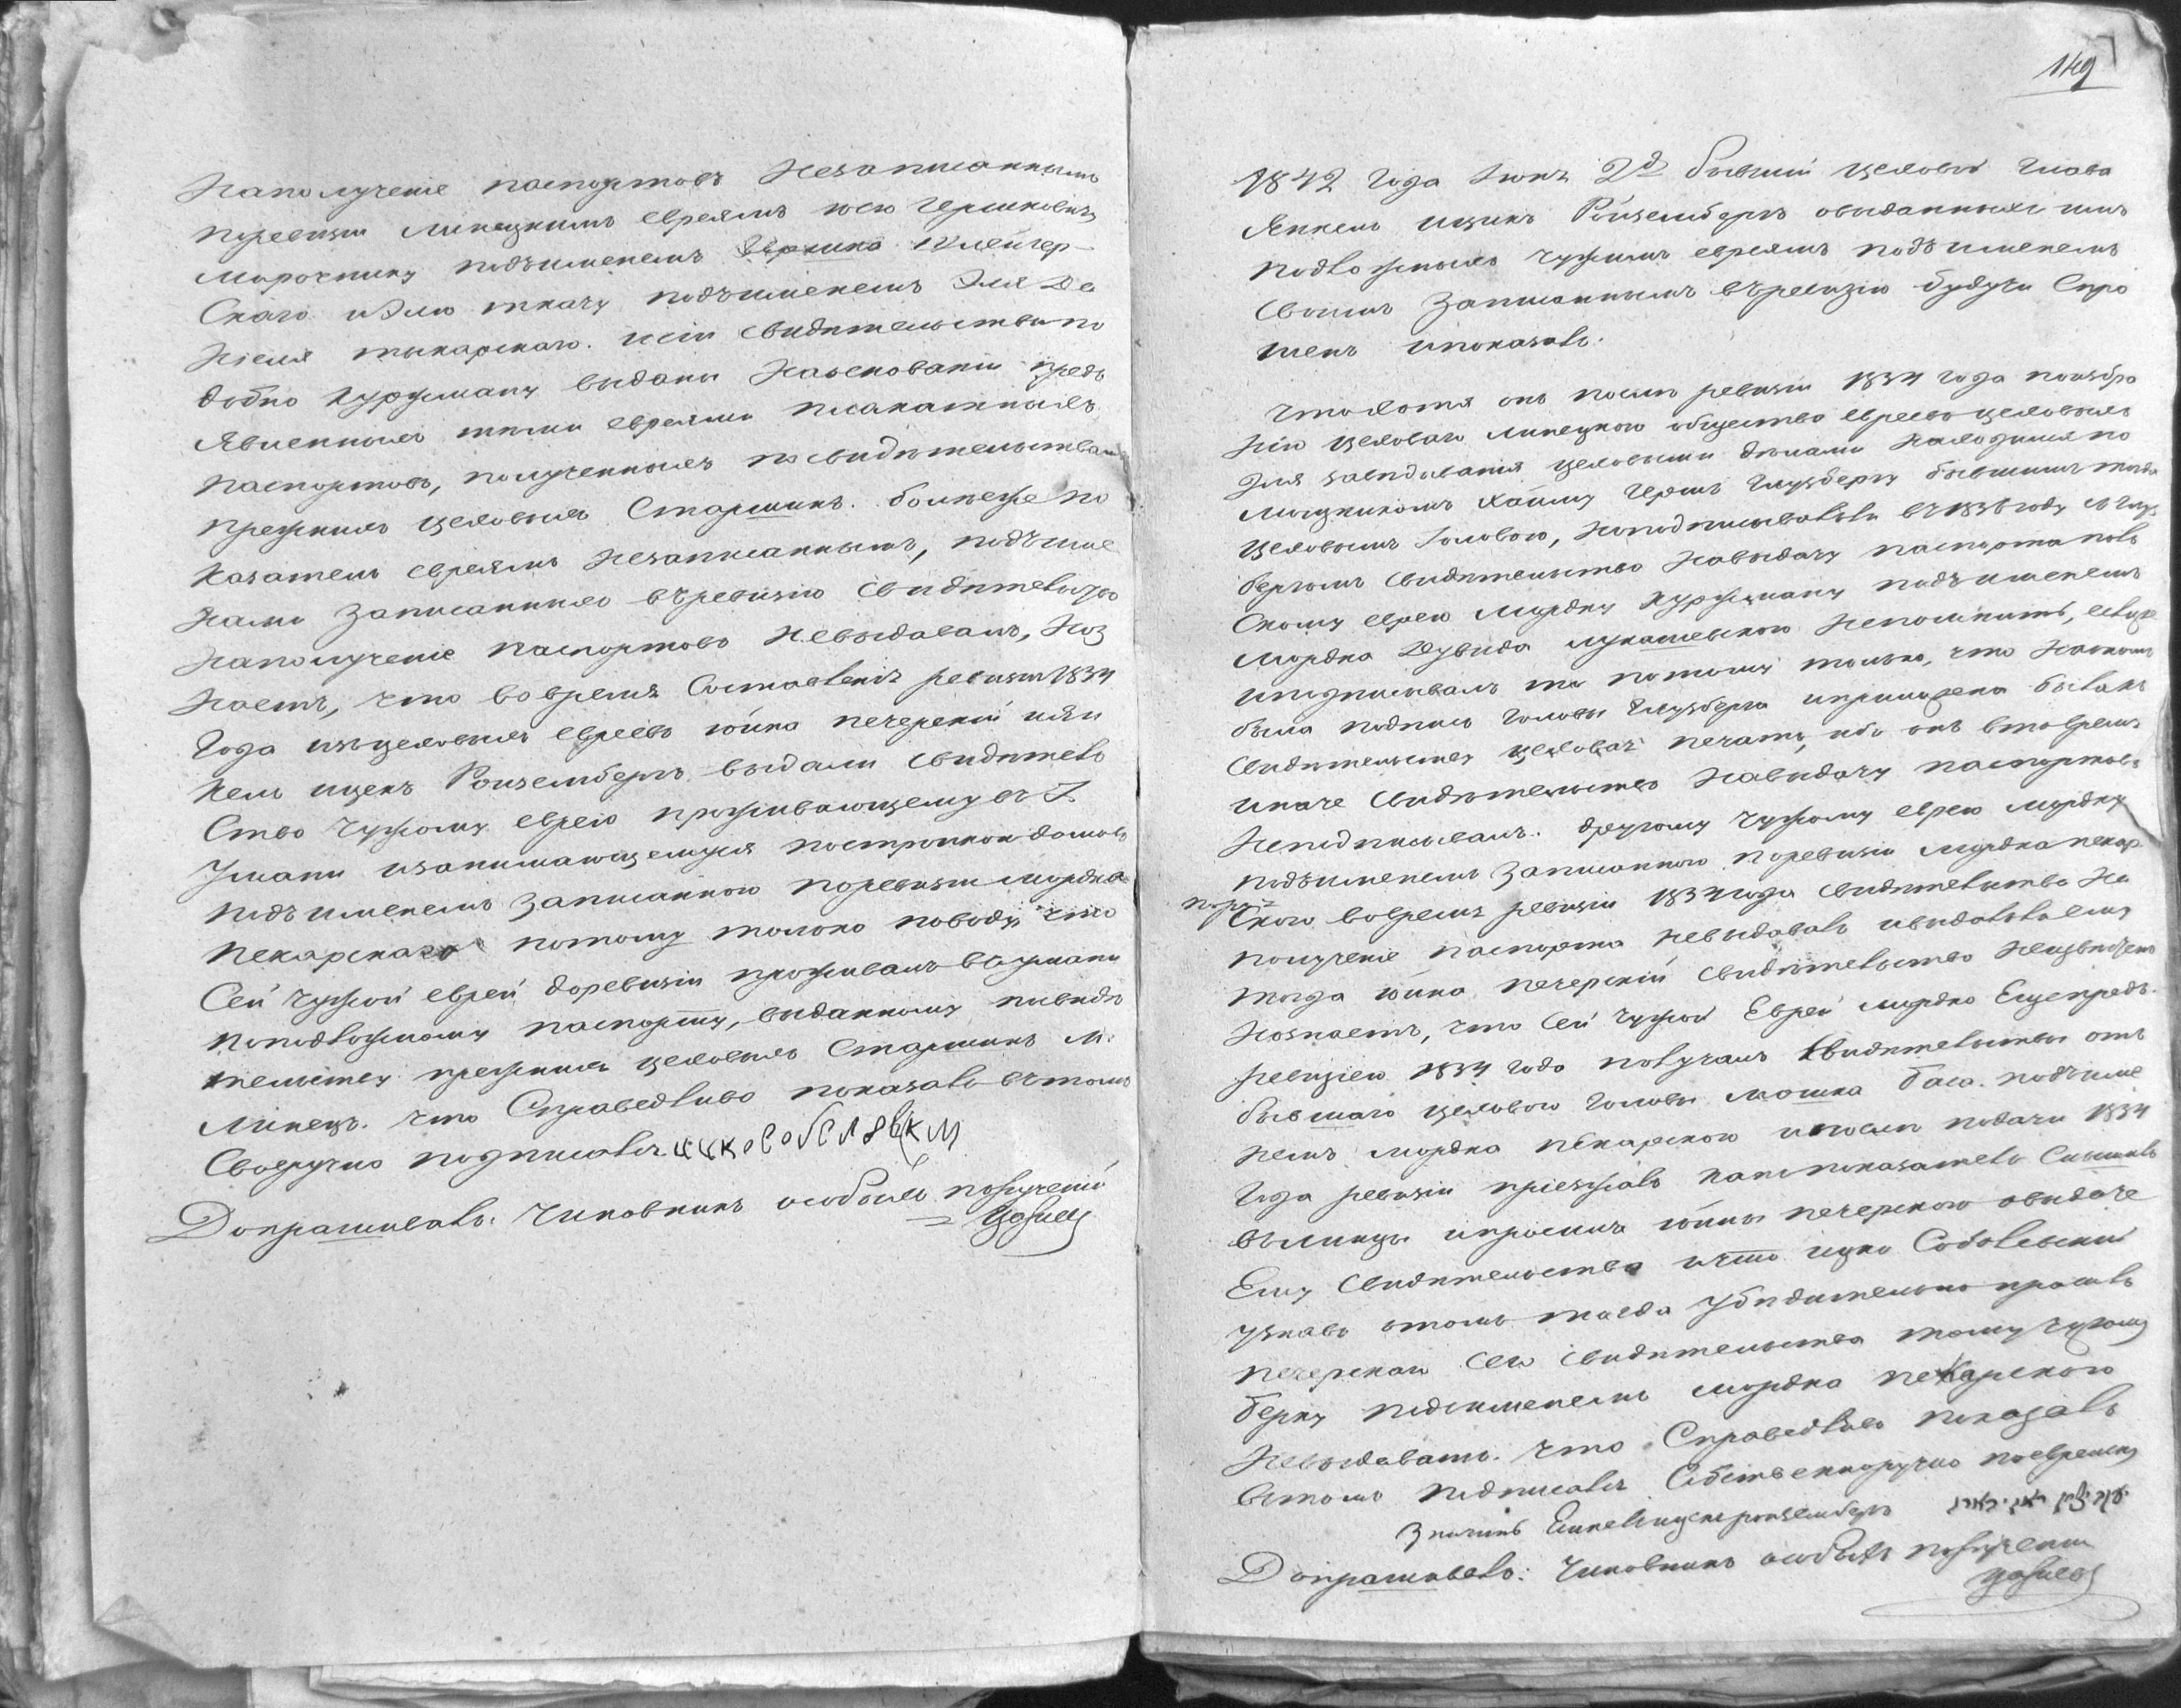 Наполученіе паспортовъ Незаписаннымъ
поревизіи Липецкимъ евреямъ Юсю Гершковичу
Мирочнику подъименемъ Гершка Клейнер-
Скаго иЭлю ткачу подъименемъ Эля Да
Ніеля токарскаго. исіи свидѣтельства по
добно Куржману выданы Наоснованіи предъ
Явленныхъ тѣми евреями плакатныхъ
паспортовъ, полученныхъ посвидѣтельствамъ
прежнихъ цеховыхъ Старшинъ. болѣеже по
Казатель евреямъ Незаписаннымъ, подъиме
Нами Записанныхъ въревизію Свидѣтельствъ
Наполученіе паспортовъ Невыдавалъ, Ноз
Наетъ, что вовремя Составленія ревизіи 1834
Года изъцеховыхъ евреевъ Юйна печерскій иЯн
Кель ицекъ Роизенбергъ выдали свидѣтель
Ство Чужому еврею проживающему въ Г.
Умани изанимающемуся постройкою домовъ
подъименемъ Записанного поревизіи Мордка
Пекарскаго потому только поводу что
Сей Чужой еврей доревизіи проживалъ въУмани
Поподложному паспорту, выданному посвидѣ
тельству прежнихъ цеховыхъ Старшинъ М.
Липецъ. Что Справедливо показалъ въ томъ
Своеручно подписался
Допрашивалъ: Чиновникъ особыхъ порученій
149
1842 Года Іюня 2д бывшій цеховой Глава
Янкель ицикъ Ройзенбергъ овыданныхъ имъ
подложныхъ чужимъ евреямъ подъименемъ
Своимъ Записаннымъ въревизію будучи Спро
шенъ ипоказалъ:
Чтохотя онъ послѣ ревизіи 1834 года поизбра
Нію цеховаго Липецкого общества евреевъ цеховыхъ
Для завѣдыванія цеховыми дѣлами Находился по
мощникомъ Хаиму Гершъ Глузбергу бывшимъ тогда
Цеховымъ Головою, Ноподписывалъли въ1836 году съ Глуз
бергомъ свидѣтельство Навыдачу паспорта
Скому еврею Мордку Куржману подъименемъ
Мордка Дувида Лукашевского Непомнитъ, еслиже
иподписывалъ то потому только, что Наономъ
была подпись головы Глузберга иприложена была къ
Свидѣтельству цеховая печать, ибо онъ втовремя
иначе свидѣтельствъ Навыдачу паспортовъ
Неподписывалъ. другому чужому еврею Мордку
подъименемъ Записанного поревизіи Мордка пекар
Ского вовремя ревизіи 1834 года свидѣтельства На
получение паспорта невыдавалъ ивыдавалъли ему
тогда Юйна печерскій свидѣтельство Неизвѣстенъ
Нознаетъ, что Сей Чужой Еврей Мордко Ещепредъ
ревизіею 1834 года получалъ свидѣтельства отъ
бывшаго цехового Головы Мошка Баса. подъиме
немъ Мордка пекарского ипослѣ подачи 1834
Года ревизіи пріезжалъ какъ показатель Слышалъ
вълипцы ипросилъ Юйны печерского овыдаче
Ему Свидѣтельства ичто ицко Соболевскій
узнавъ отомъ тогда убѣдительно просилъ
печерскаго Сего свидѣтельства тому чужому
берку подъименемъ Мордка пекарского
Невыдавать. что Справедливо показалъ
Втомъ подписался Собственноручно поеврейску
Значитъ
Допрашивалъ: Чиновникъ особыхъ порученій